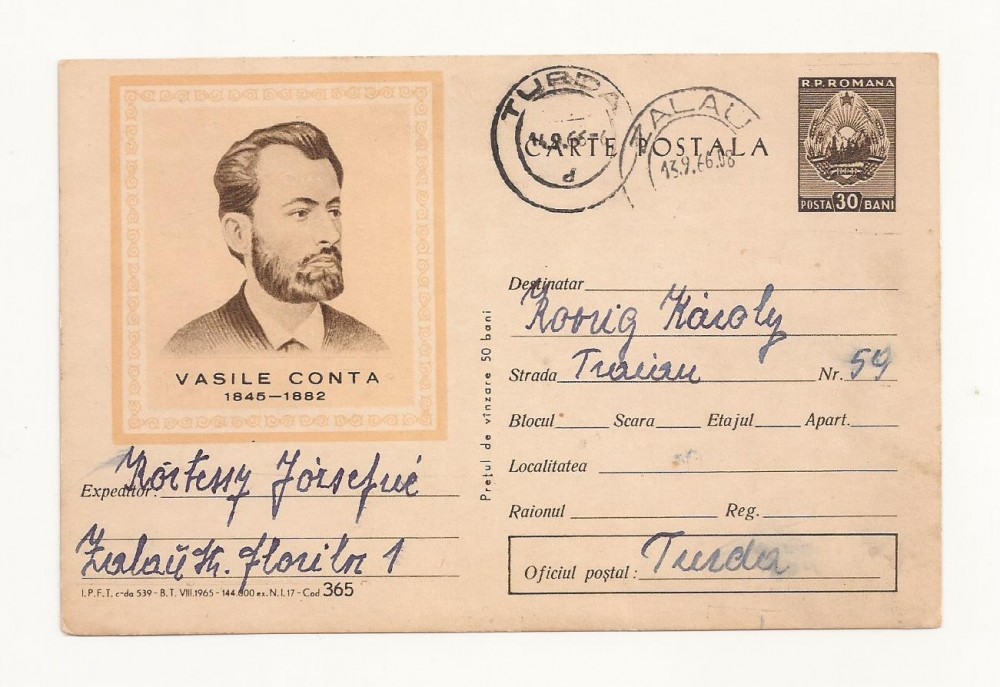 TURDA
14.9.66
ZALAU
13.9.66.08
CARTE POSTALA
R.P. ROMANA
POSTA 30 BANI
VASILE CONTA
1845—1882
Destinatar
Károly
Strada Traian Nr. 59
Blocul Scara Etajul Apart.
Localitatea
Raionul Reg.
Oficiul poștal: Turda
Prețul de vînzare 50 bani
Expeditor: Józsefné
Zalău str. Florilor 1
I.P.F.T. c-da 539 - B.T. VIII.1965 - 144.000 ex. N.I.17 - Cod 365